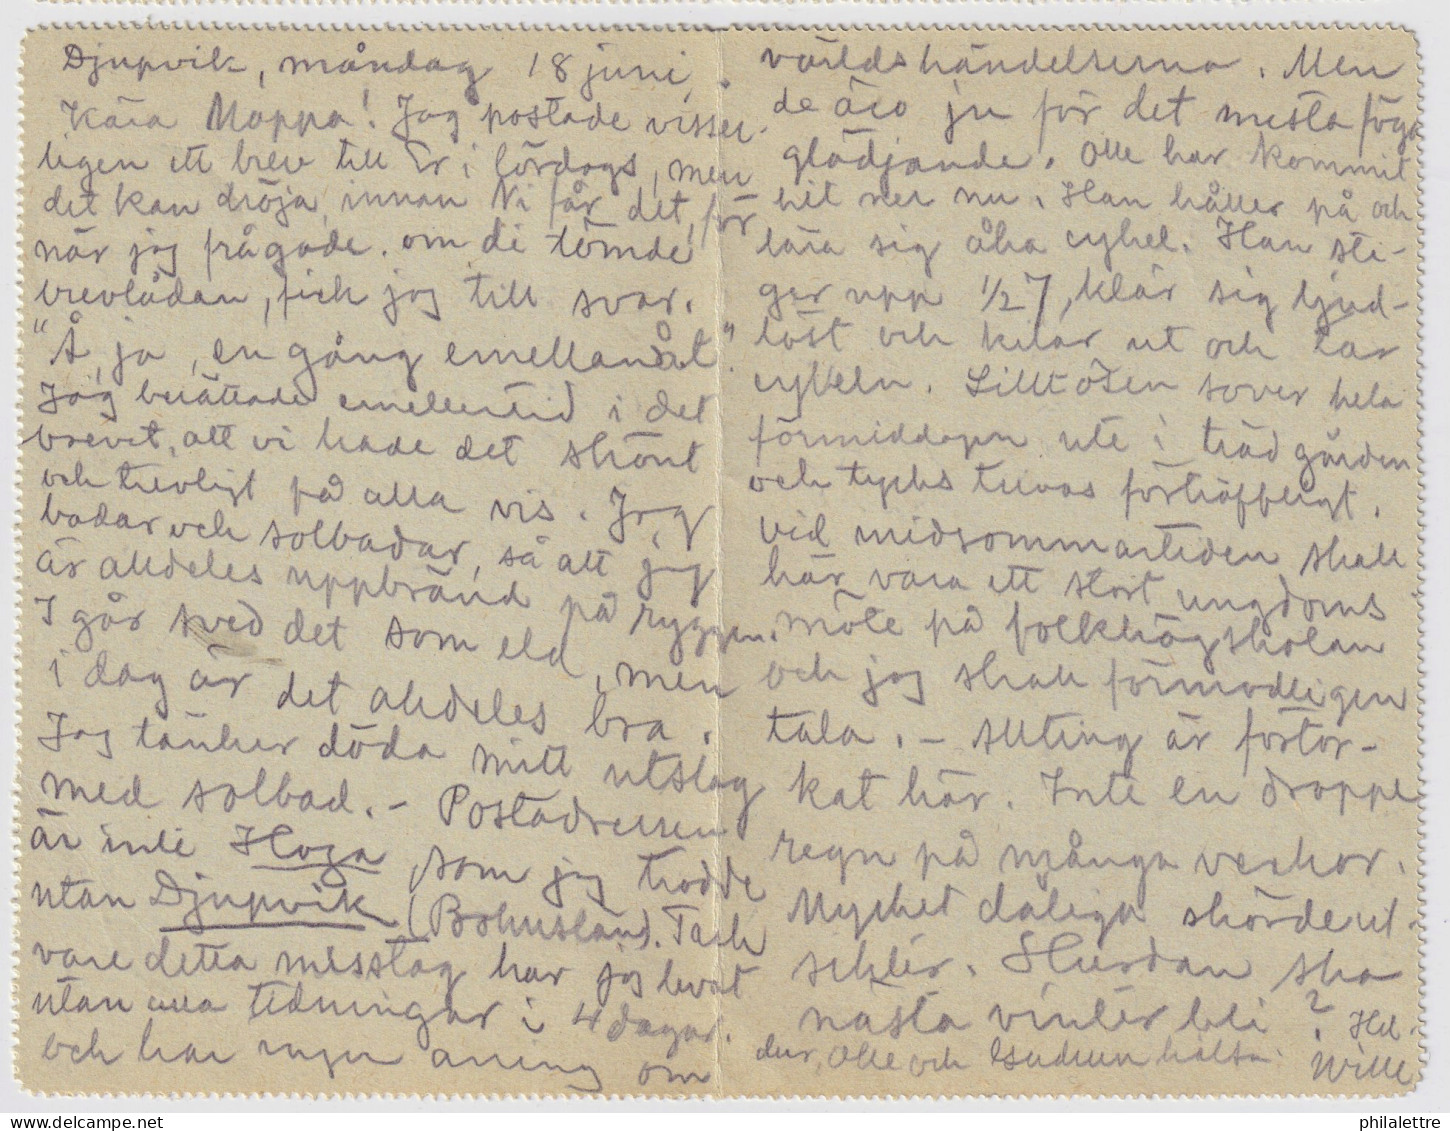 Djupvik, måndag 18 juni.
Kära Moppa! Jag postade visser-
ligen ett brev till Er i lördags, men
det kan dröja, innan Ni får det, för
när jag frågade om de tömde
brevlådan, fick jag till svar:
"Å, ja, en gång emellanåt."
Jag berättade emellertid i det
brevet, att vi hade det skönt
och trevligt på alla vis. Jag
badar och solbadar, så att jag
är alldeles uppbränd på ryggen.
I går sved det som eld, men
i dag är det alldeles bra.
Jag tänker döda mitt utslag
med solbad. – Postadressen
är inte Hoga, som jag trodde
utan Djupvik (Bohuslän). Tack
vare detta misstag har jag levat
utan alla tidningar i 4 dagar.
och har ingen aning om
världshändelserna. Men
de äro ju för det mesta föga
glädjande. Olle har kommit
hit ner nu. Han håller på och
lära sig åka cykel. Han sti-
ger upp 1/2 7, klär sig ljud-
löst och kilar ut och tar
cykeln. Lilltösen sover hela
förmiddagen ute i trädgården
och tycks trivas förträffligt.
Vid midsommartiden skall
här vara ett stort ungdoms
möte på folkhögskolan
och jag skall förmodligen
tala. – Allting är förtor-
kat här. Inte en droppe
regn på många veckor.
Mycket dåliga skördeut-
sikter. Hurdan ska
nästa vinter bli?
Hel-
dur, Olle och Gudrun hälsa.
Wille
philalettre